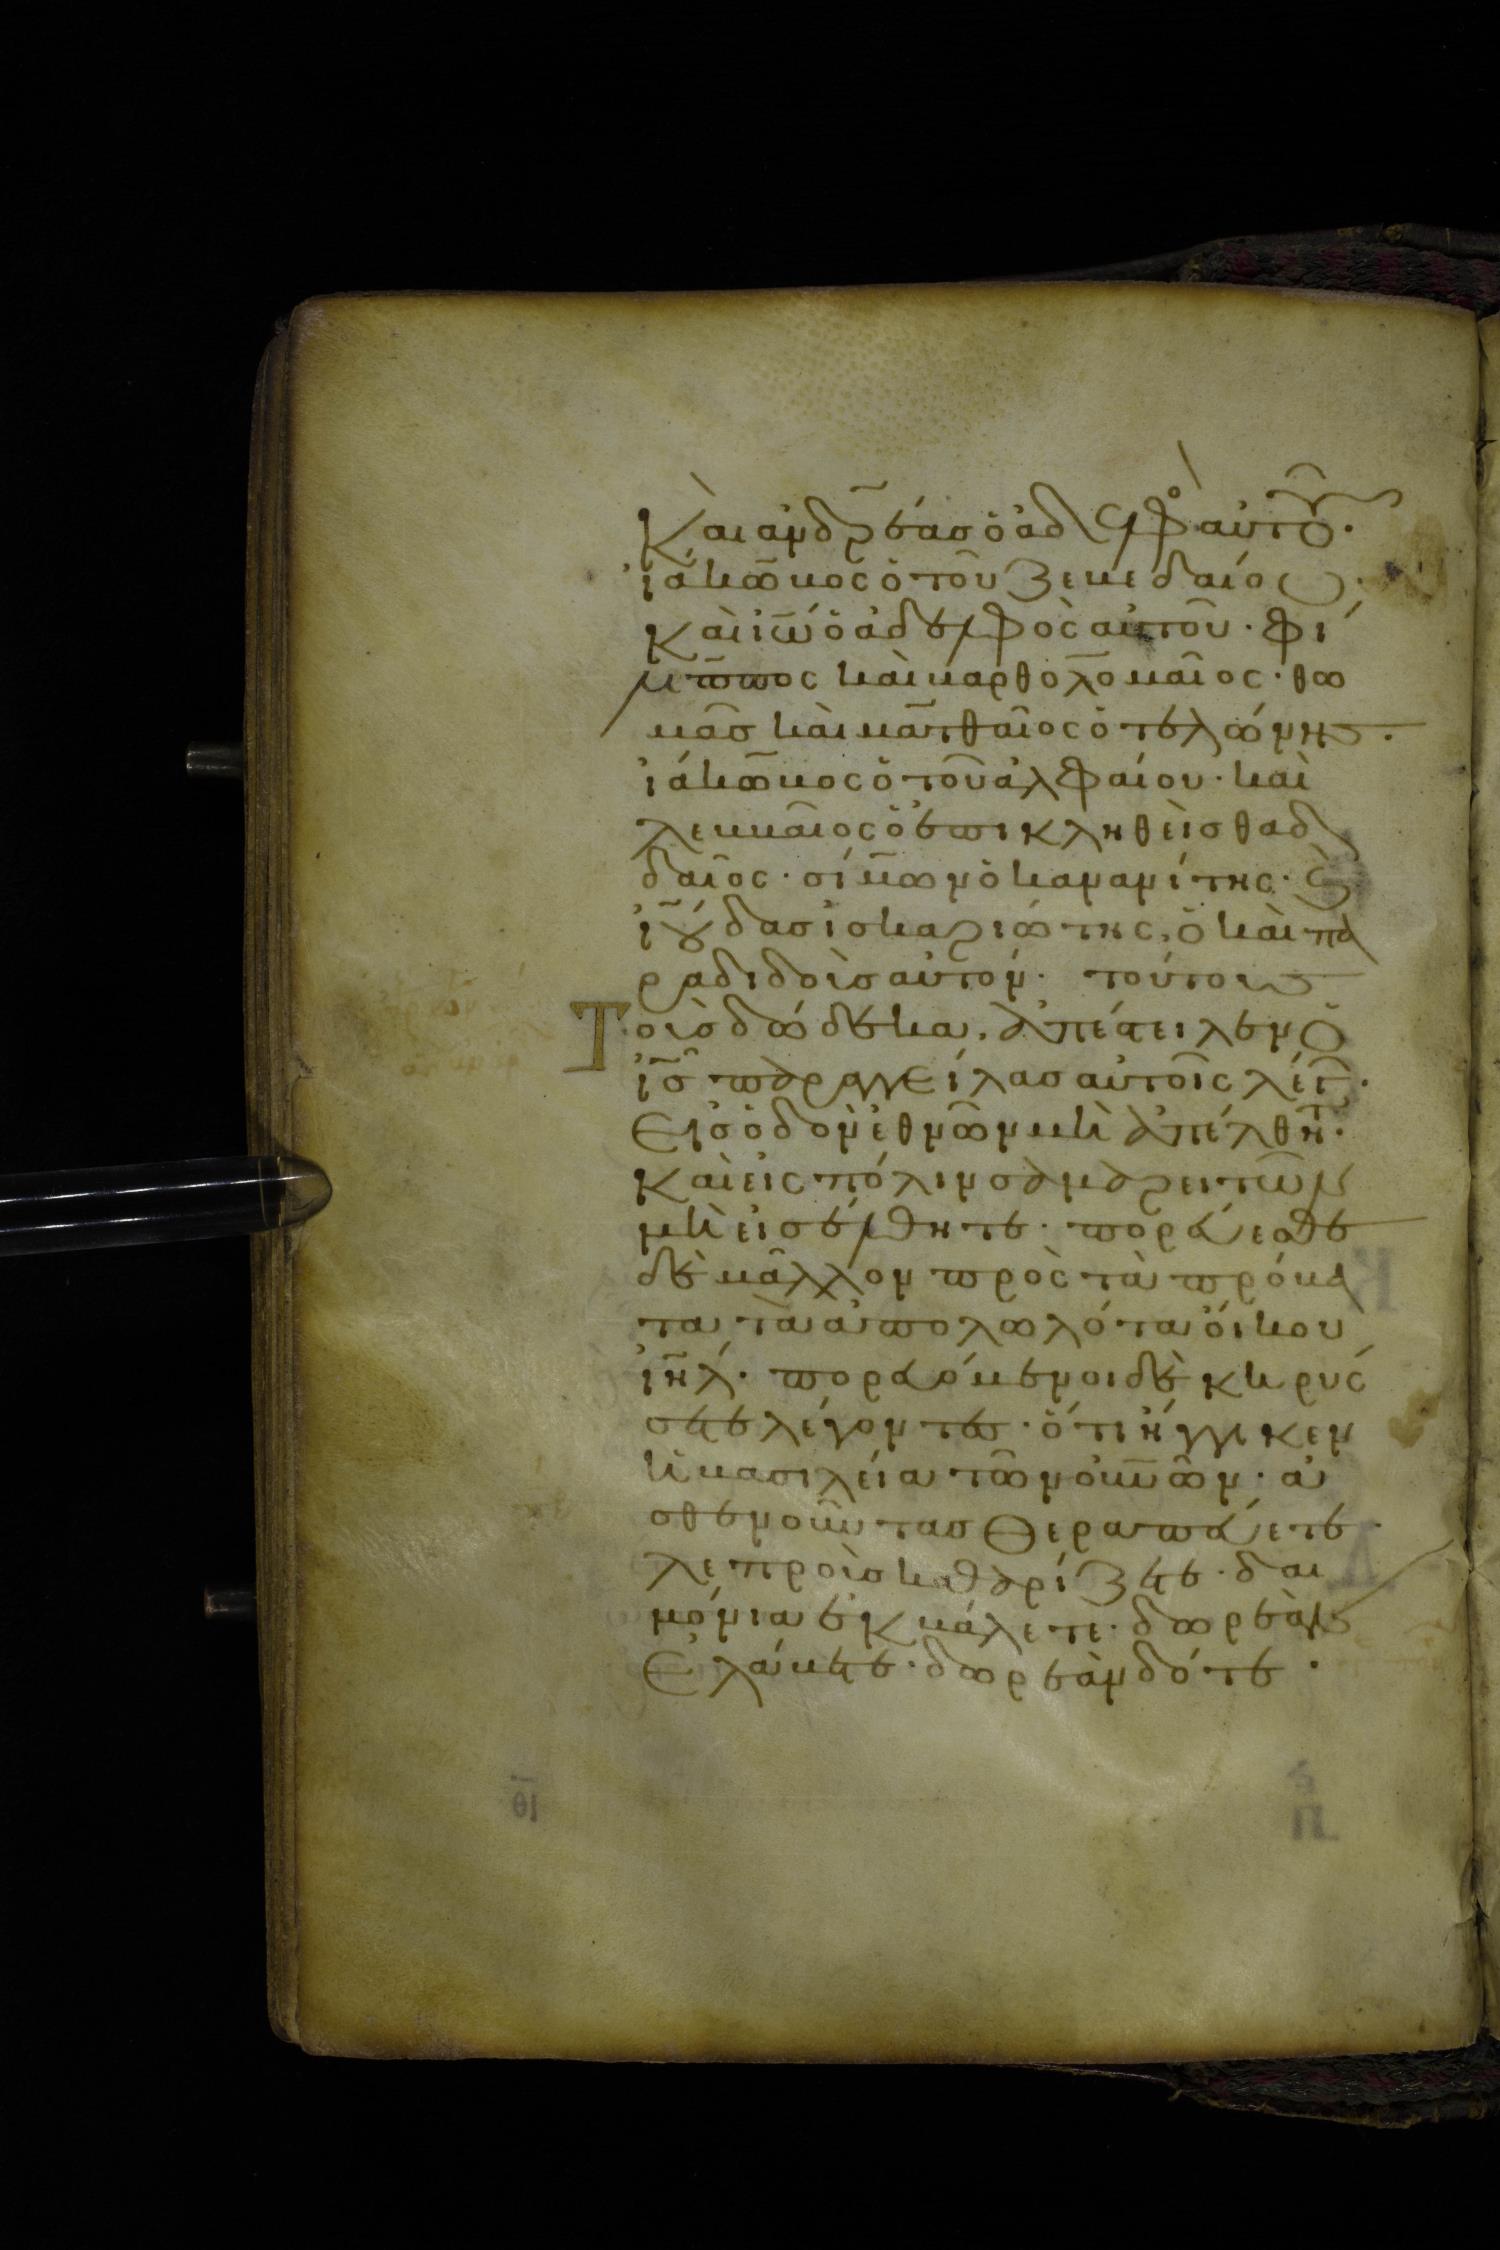 Καὶ ἀνδρέας ὁ ἀδελφὸ αὐτοῦ·
ἰάκωβος ὁ τοῦ Ζεβεδαίου·
Καὶ ἰω̅ ὁ ἀδελφὸς αὐτοῦ· φί
λιππος καὶ βαρθολομαῖος· θω
μᾶς καὶ ματθαῖος ὁ τελώνης·
ἰάκωβος ὁ τοῦ ἀλφαίου· καὶ
λεββαῖος ὁ ἐπικληθεὶς θαδ
δαῖος· σίμων ὁ κανανίτης· ϗ
ἰούδας ἰσκαριώτης, ὁ καὶ πα
ραδιδοὺς αὐτόν· τούτους
Τοὺς δώδεκα, ἀπέστειλεν ὁ
ἰ̅ς̅ παραγγείλας αὐτοῖς λέγ·
Εἰς ὁδὸν ἐθνῶν μὴ ἀπέλθητ·
Καὶ εἰς πόλιν σαμαρειτῶν
μὴ εἰσέλθητε· πορεύεσθε
δὲ μᾶλλον πρὸς τὰ πρόβα
τα τὰ ἀπολωλότα οἴκου
ἰη̅λ̅· πορευόμενοι δὲ κηρύσ
σετε λέγοντες· ὅτι ἤγγικεν
ἡ βασιλεία τῶν οὐ̅νῶν· ἀ
σθενοῦντας Θεραπεύετε·
λεπροὺς καθαρίζετε· δαι
μόνια ἐκβάλετε· δωρεὰν
Ἐλάβετε· δωρεὰν δότε·